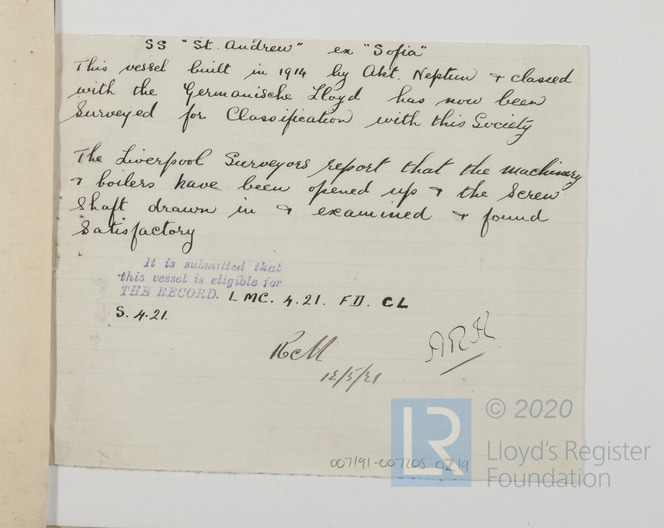 SS "St. Andrew" ex "Sofia"
This vessel built in 1914 by Akt. Neptun & classed
with the Germanische Lloyd has now been
Surveyed for Classification with this Society
The Liverpool Surveyors report that the machinery
& boilers have been opened up & the Screw
Shaft drawn in & examined & found
Satisfactory
It is submitted that
this vessel is eligible for
THE RECORD. LMC. 4.21. F.D. CL
S. 4.21.
RcM
12/5/21
ARH
© 2020
LR
Lloyd's Register
Foundation
007191-007205-0219